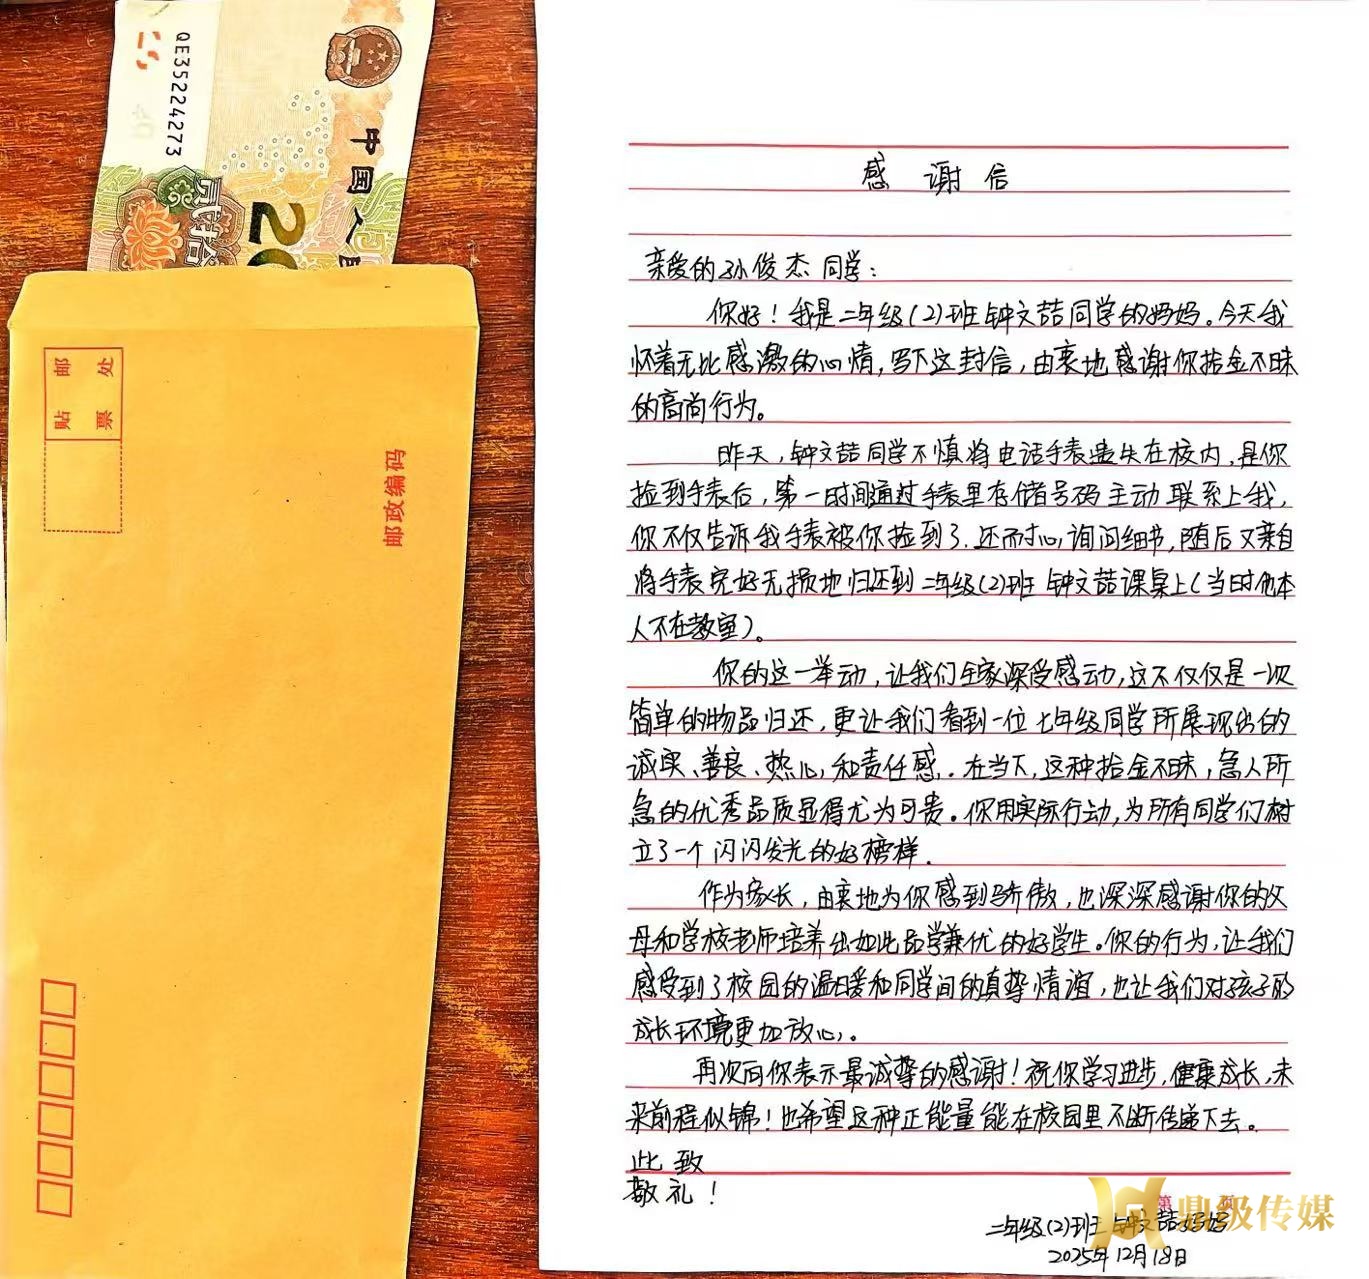 QE35224273
中国人民
贰拾
20
贴邮
票处
邮政编码
感谢信
亲爱的孙俊杰同学：
你好！我是二年级(2)班钟文喆同学的妈妈。今天我
怀着无比感激的心情，写下这封信，由衷地感谢你拾金不昧
的高尚行为。
昨天，钟文喆同学不慎将电话手表遗失在校内，是你
捡到手表后，第一时间通过手表里存储号码主动联系上我，
你不仅告诉我手表被你捡到了.还耐心询问细节，随后又亲自
将手表完好无损地归还到二年级(2)班钟文喆课桌上(当时他本
人不在教室)。
你的这一举动，让我们全家深受感动，这不仅仅是一次
简单的物品归还，更让我们看到一位七年级同学所展现出的
诚实、善良、热心，和责任感。在当下，这种拾金不昧，急人所
急的优秀品质显得尤为可贵。你用实际行动，为所有同学们树
立了一个闪闪发光的好榜样.
作为家长，由衷地为你感到骄傲，也深深感谢你的父
母和学校老师培养出如此品学兼优的好学生。你的行为，让我们
感受到了校园的温暖和同学间的真挚情谊，也让我们对孩子的
成长环境更加放心。
再次向你表示最诚挚的感谢！祝你学习进步，健康成长，未
来前程似锦！也希望这种正能量能在校园里不断传递下去。
此致
敬礼！
第
二年级(2)班钟文喆妈妈
2025年12月18日
鼎级传媒